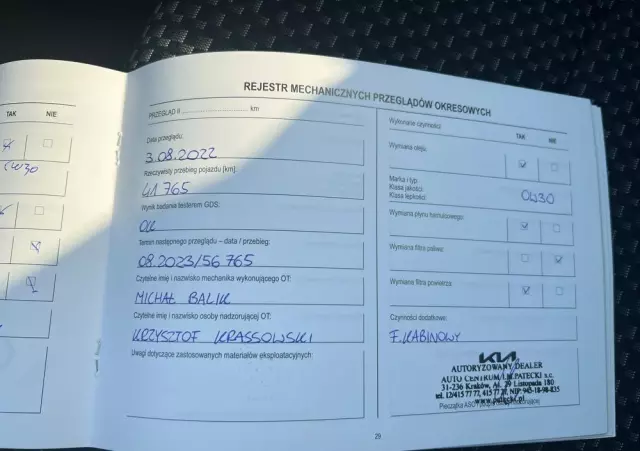 TAK NIE
0W30
REJESTR MECHANICZNYCH PRZEGLĄDÓW OKRESOWYCH
PRZEGLĄD II .......................... km
Data przeglądu:
3.08.2022
Rzeczywisty przebieg pojazdu [km]:
41 765
Wynik badania testerem GDS:
OK
Termin następnego przeglądu – data / przebieg:
08.2023/56 765
Czytelne imię i nazwisko mechanika wykonującego OT:
MICHAŁ BALIK
Czytelne imię i nazwisko osoby nadzorującej OT:
KRZYSZTOF KRASSOWSKI
Uwagi dotyczące zastosowanych materiałów eksploatacyjnych:
Wykonane czynności: TAK NIE
Wymiana oleju:
Marka i typ
Klasa jakości
Klasa lepkości 0W30
Wymiana płynu hamulcowego:
Wymiana filtra paliwa:
Wymiana filtra powietrza:
Czynności dodatkowe:
F. KABINOWY
KIA
AUTORYZOWANY DEALER
AUTO CENTRUM PATECKI s.c.
31-236 Kraków, Al. 29 Listopada 180
tel. 12/415 77 77, NIP:
Pieczątka ASO
29